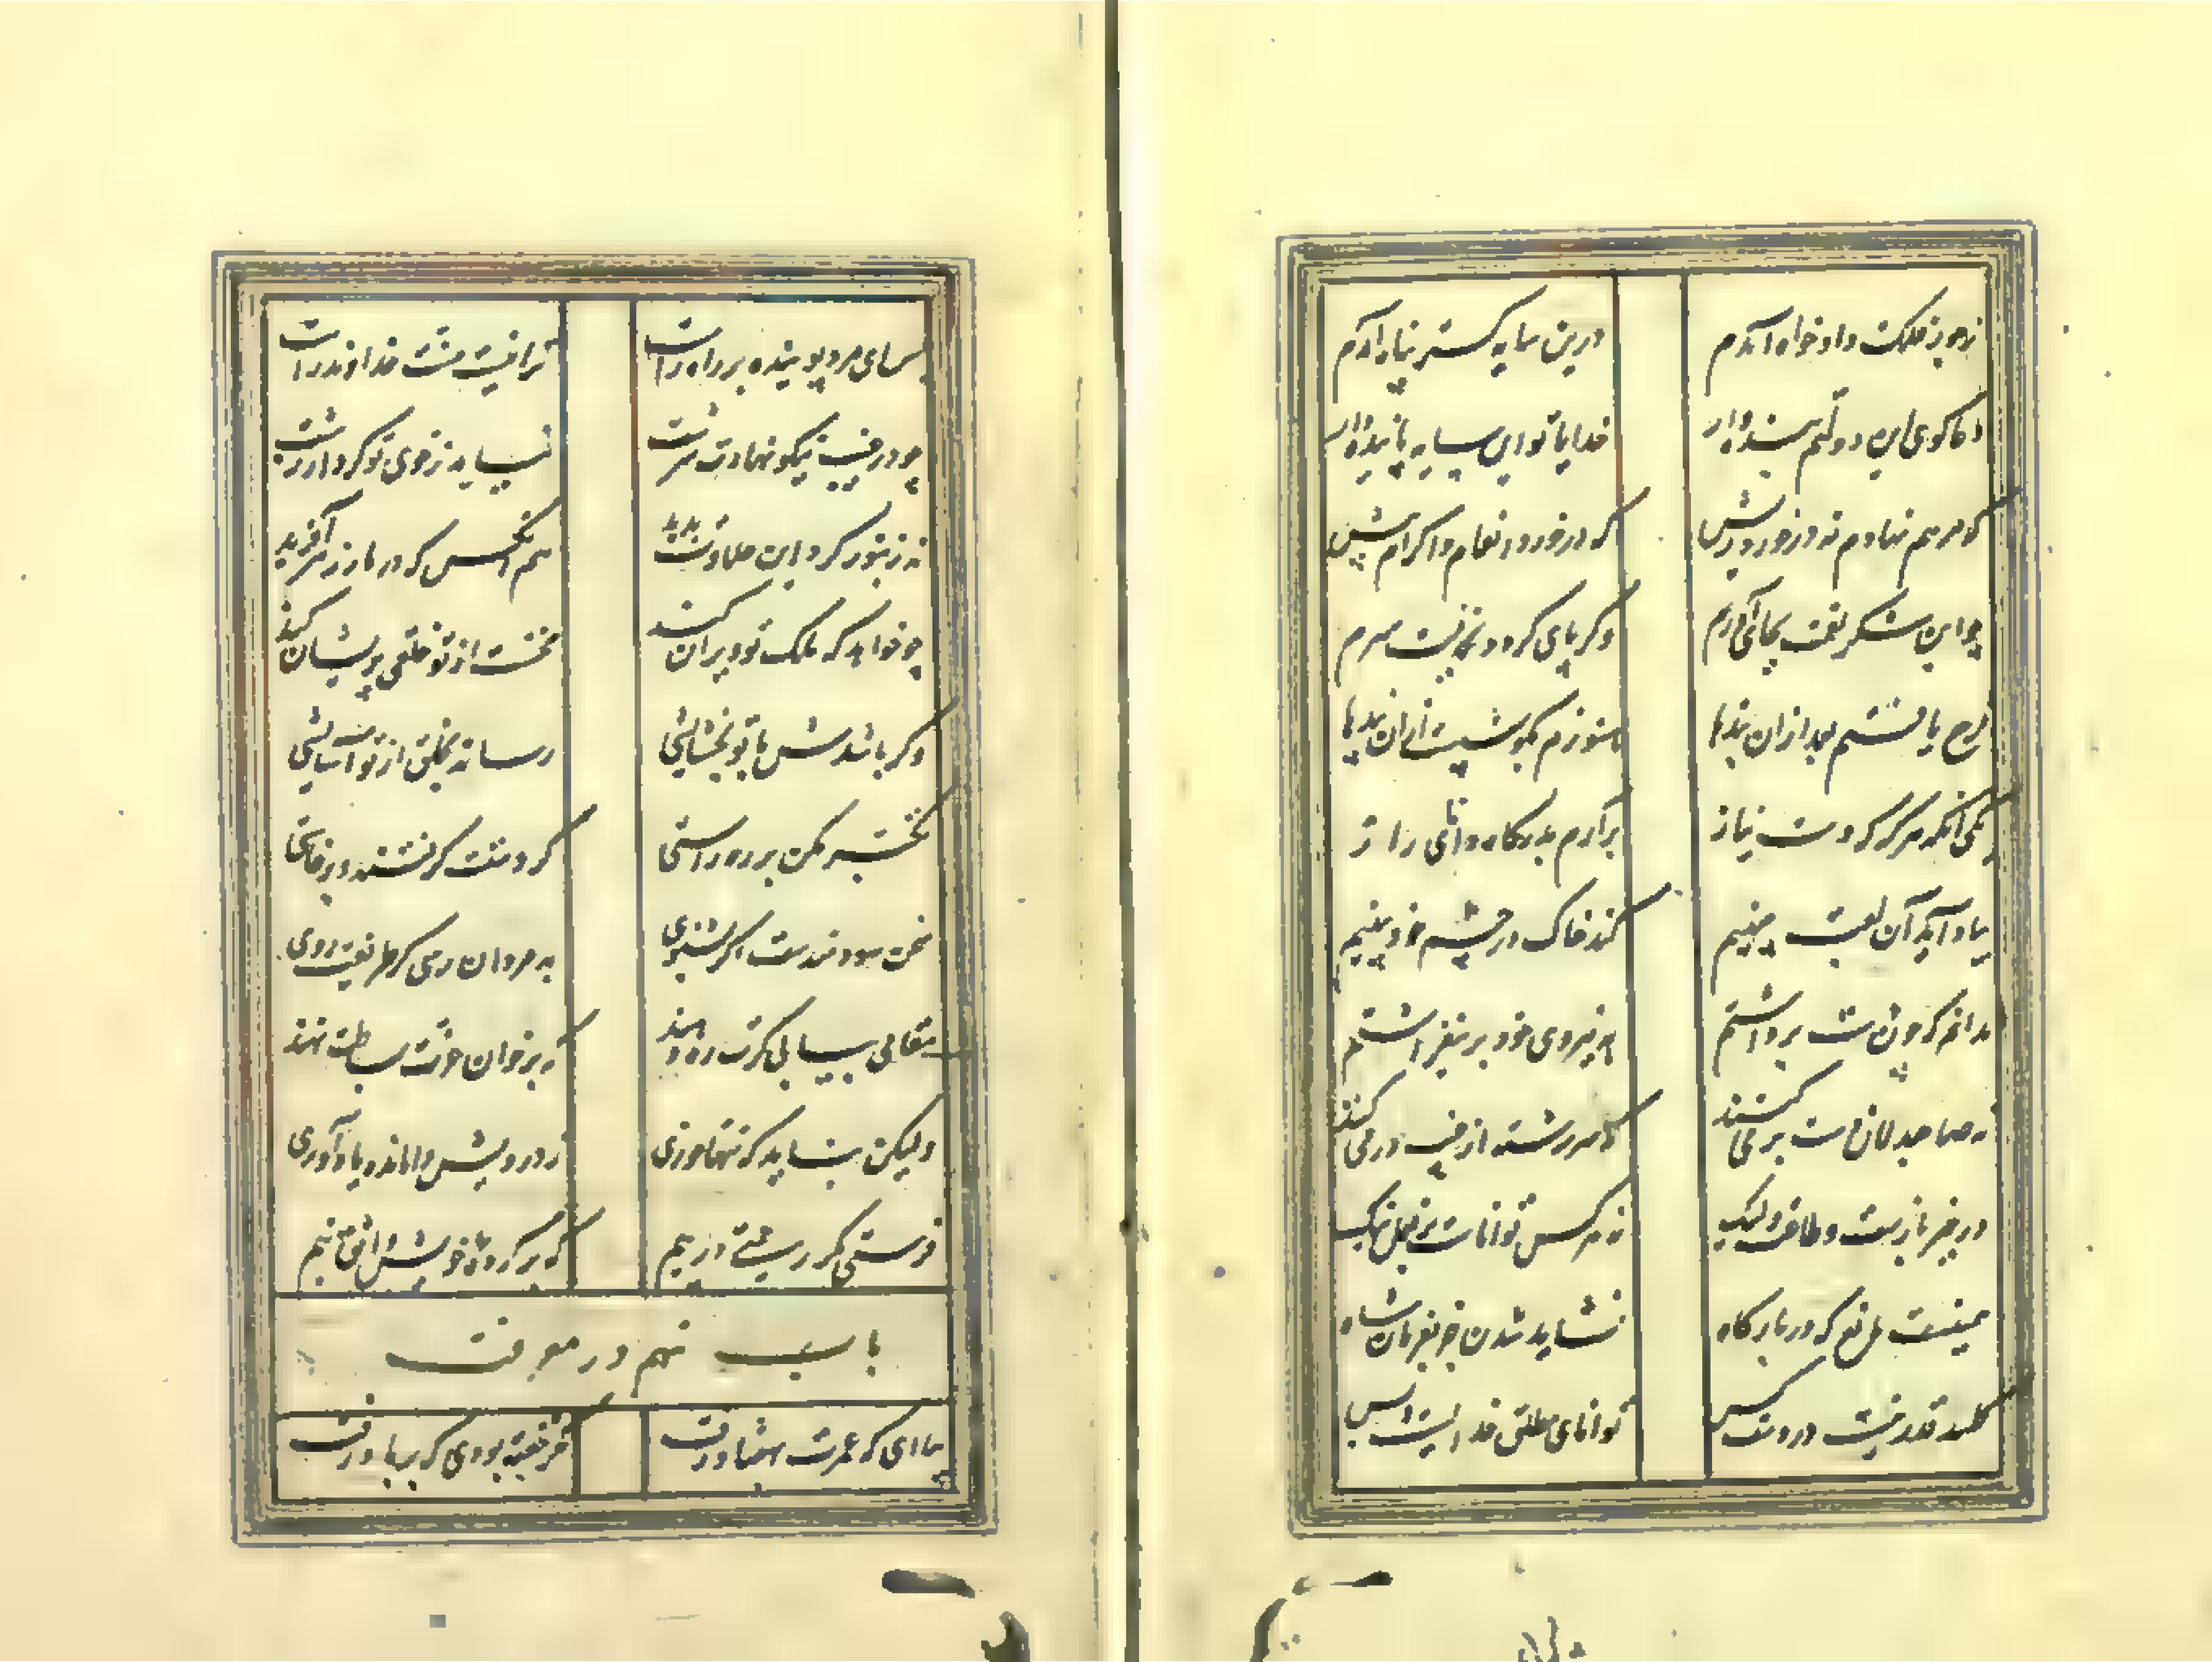 ز جور فلک دادخواه آمدم
درین سایه گستر پناه آمدم
دعا گوی این دولتم بنده وار
خدایا تو این سایه پاینده دار
که مرهم نهادم نه در خورد ریش
که در خورد انعام و اکرام خویش
چو این شکر نعمت بجای آورم
وگر پای گردد بخدمت سرم
فرج یافتم بعد ازان بندها
هنوزم بگوشست ازان پندها
یکی آنکه هرگه که دست نیاز
برآرم بدرگاه دانای راز
بیاد آید آن لعبت چینیم
کند خاک در چشم خود بینیم
بدانم که چون دست برداشتم
به نیروی خود بر نیفراشتم
نه صاحبدلان دست بر می کشند
که سررشته از غیب در می کشند
در خیر بازست و طاعت ولیک
نه هر کس تواناست بر فعل نیک
همینست مانع که در بارگاه
نشاید شدن جز بفرمان شاه
کلید قدر نیست در دست کس
توانای مطلق خدایست و بس
پس ای مرد پوینده بر راه راست
ترا نیست منت خداوند راست
چو در غیب نیکو نهادت سرشت
نیاید ز خوی تو کردار زشت
ز زنبور کرد این حلاوت پدید
هم آنکس که در مار زهر آفرید
چو خواهد که ملک تو ویران کند
نخست از تو خلقی پریشان کند
وگر باشدش با تو بخشایشی
رساند بخلق از تو آسایشی
تکبر مکن بر ره راستی
که دستت گرفتند و برخاستی
سخن سودمندست اگر بشنوی
به مردان رسی گر طریقت روی
مقامی بیابی گرت ره دهند
که بر خوان عزت سماطت نهند
ولیکن نباید که تنها خوری
ز درویش درمانده یاد آوری
فرستی مگر رحمتی در پیم
که بر کرده خویش واثق نیم
باب نهم در معرفت
بیا ای که عمرت بهفتاد رفت
مگر خفته بودی که بر باد رفت